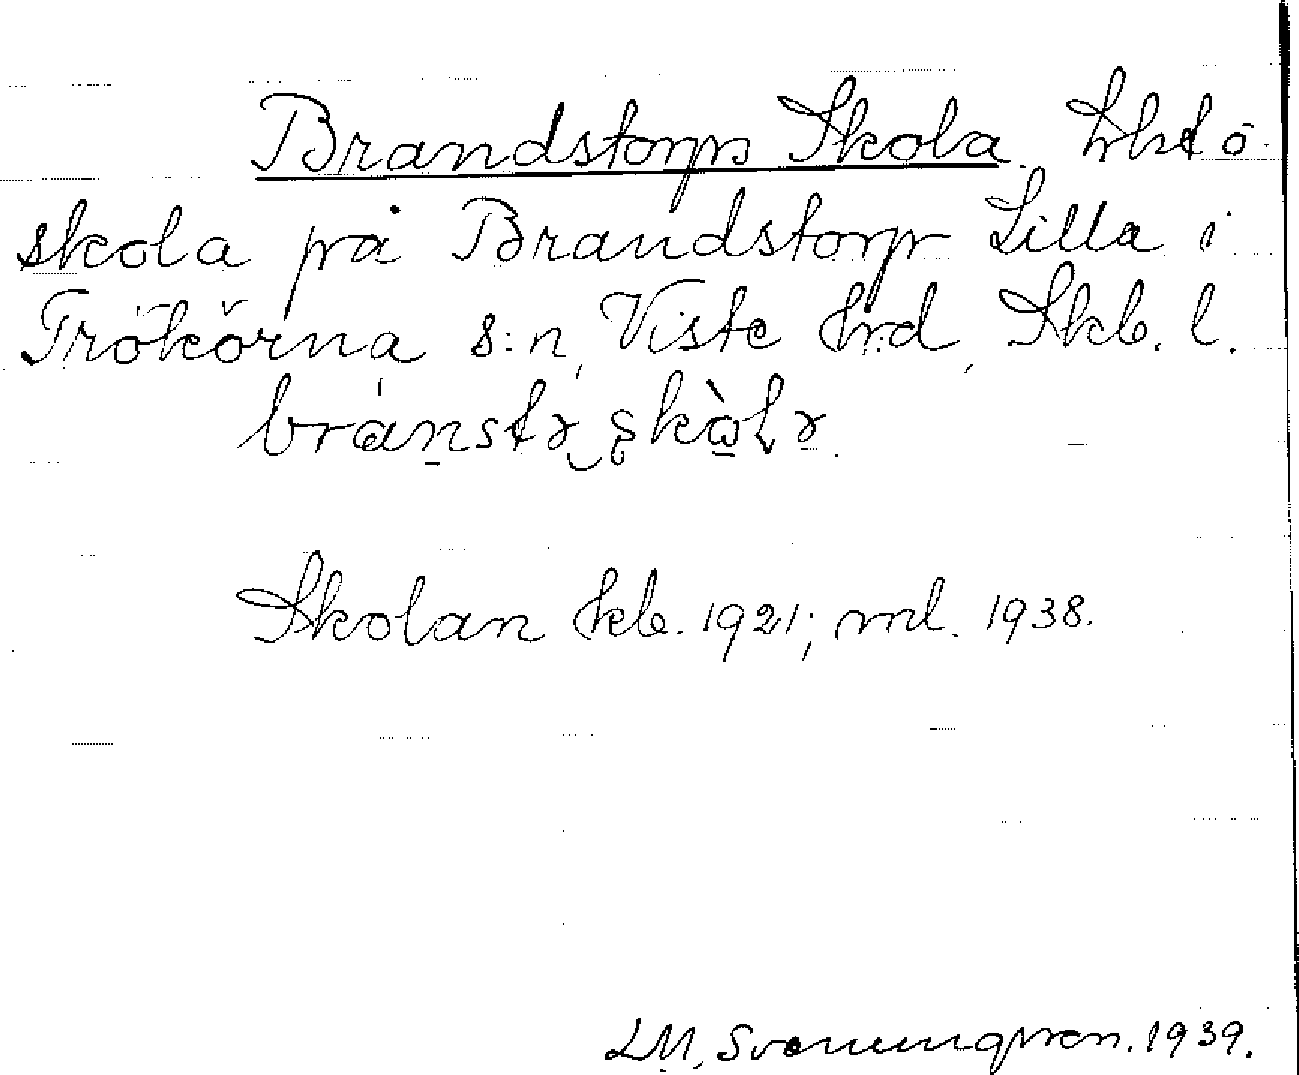 Brandstorps Skola,
skola på Brandstorp Lilla i
Trökörna s:n, Viste hrd, Skb. l.
Skolan kb. 1921; ml. 1938.
LM, Svenungsson. 1939.